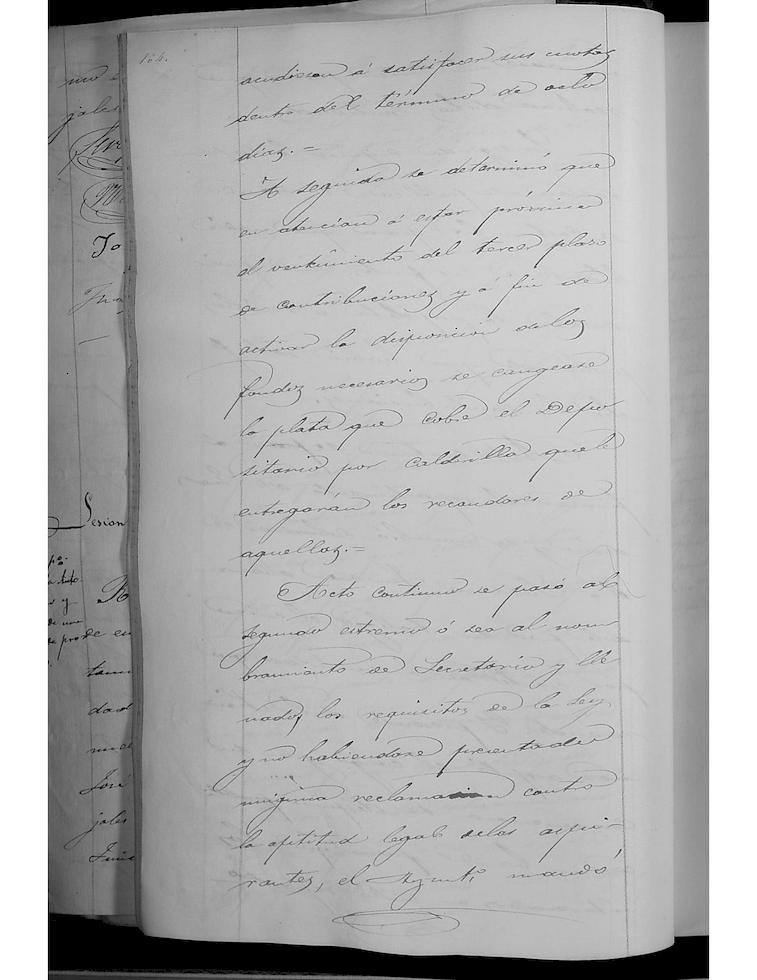 164.
acudiesen á satisfacer sus cuotas
dentro del término de ocho
dias.=
A seguida se determinó que
en atencion á estar próximo
el vencimiento del tercer plaso
de contribuciones y á fin de
activar la disposicion de los
fondos necesarios se cangease
la plata que cobre el Depo
sitario por calderilla que le
entregarán los recaudores de
aquellas.=
Acto continuo se pasó al
segundo estremo ó sea al nom
bramiento de Secretario y lle
nados los requisitos de la Ley
y no habiendose presentado
ninguna reclamacion contra
la aptitud legal de los aspi-
rantes, el Ayunt.º mandó
Sesion
José
jales